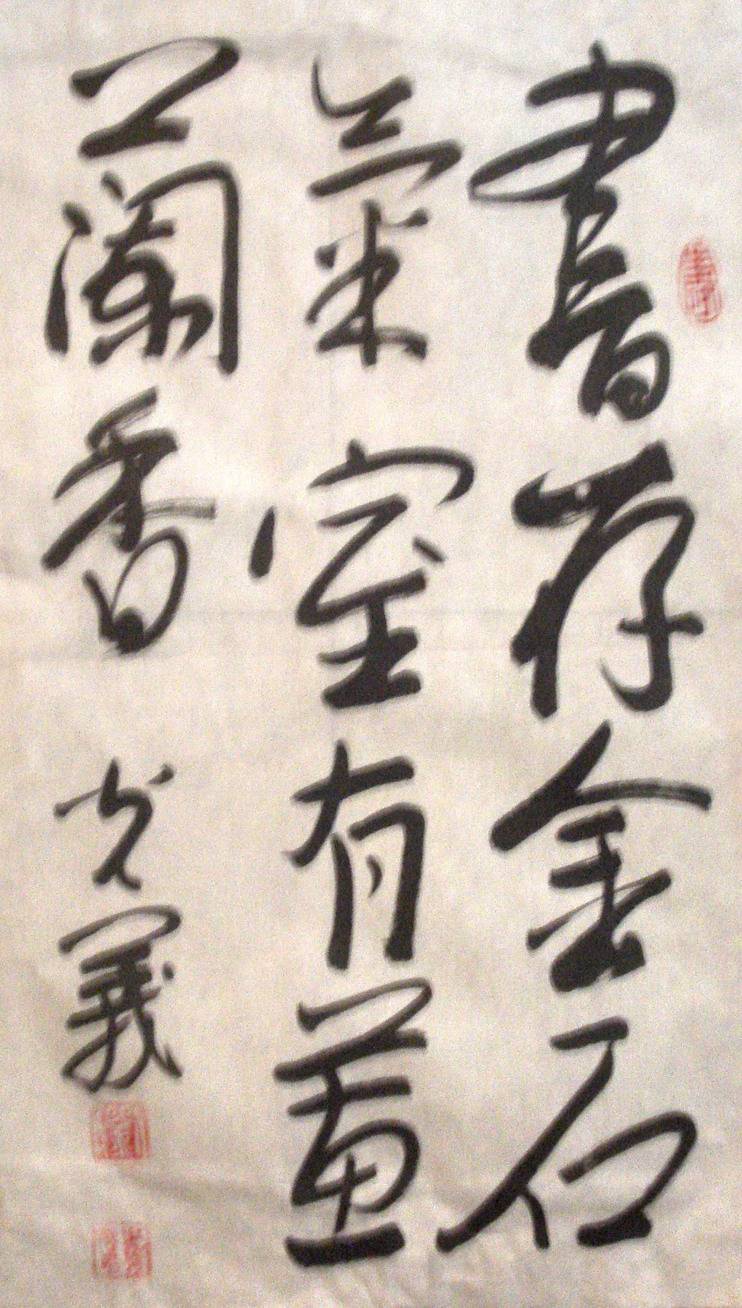 書存金石
氣室有蕙
蘭香 光義